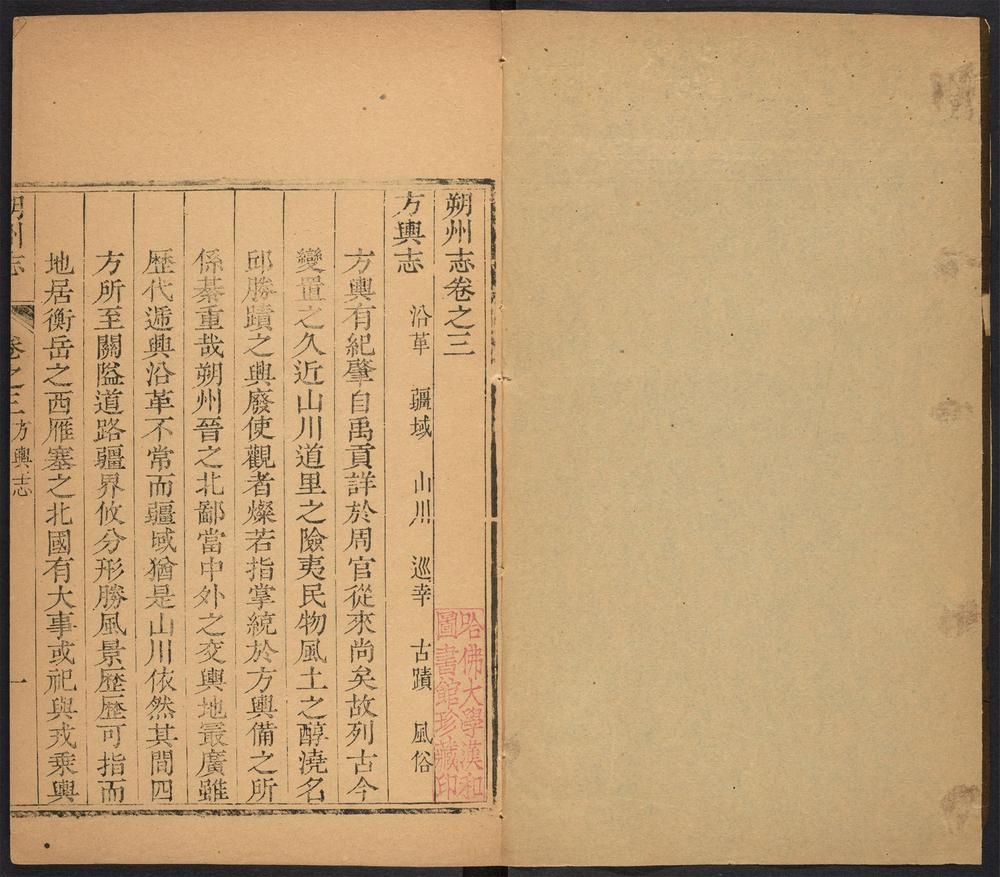 朔州志卷之三
方輿志 沿革 疆域 山川 巡幸 古蹟 風俗
方輿有紀肇自禹貢詳於周官從來尚矣故列古今
變置之久近山川道里之險夷民物風土之醇澆名
邱勝蹟之興廢使觀者燦若指掌統於方輿備之所
係綦重哉朔州晉之北鄙當中外之交輿地最廣雖
歷代遞興沿革不常而疆域猶是山川依然其間四
方所至關隘道路疆界攸分形勝風景歷歷可指而
地居衡岳之西雁塞之北國有大事或祀與戎乘輿
朔州志 卷之三 方輿志 一
哈佛大學漢和
圖書館珍藏印